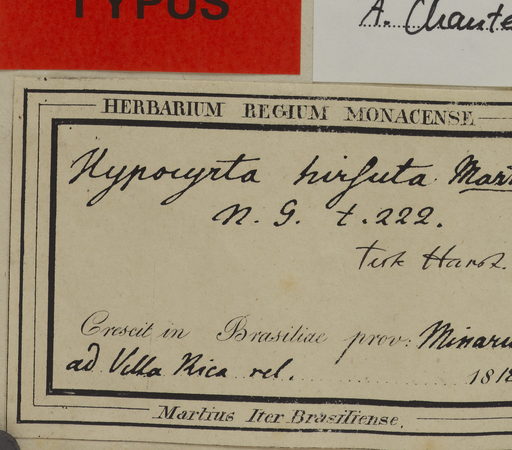 TYPUS
A. Chaute
HERBARIUM REGIUM MONACENSE
Hypocyrta hirsuta Mart
N. G. t. 222.
Crescit in Brasiliae prov: Minaru
ad Villa Rica rel. 181
Martius Iter Brasiliense.